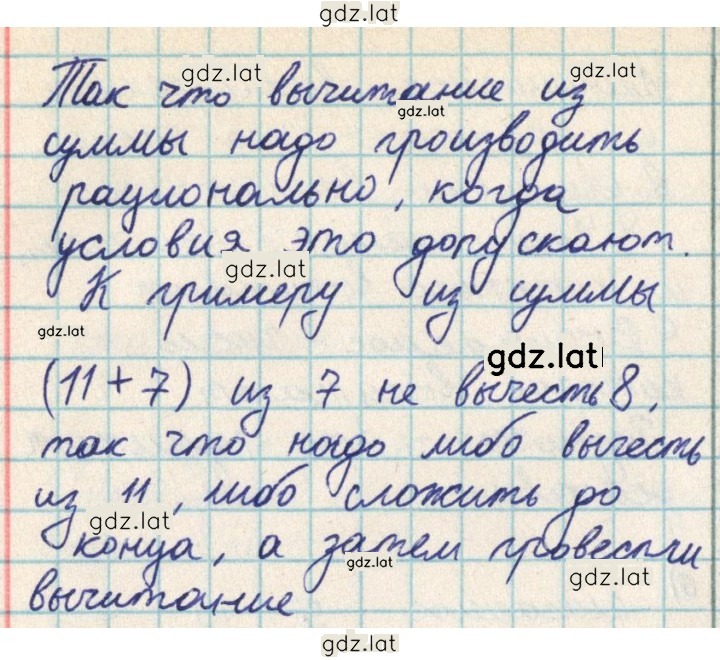 gdz.lat
gdz.lat gdz.lat
Так что вычитание из
gdz.lat
суммы надо производить
рационально, когда
условия это допускают.
gdz.lat
К примеру из суммы
gdz.lat
gdz.lat
(11 + 7) из 7 не вычесть 8,
так что надо либо вычесть
из 11, либо сложить до
gdz.lat
конца, а затем провести
gdz.lat gdz.lat
вычитание
gdz.lat